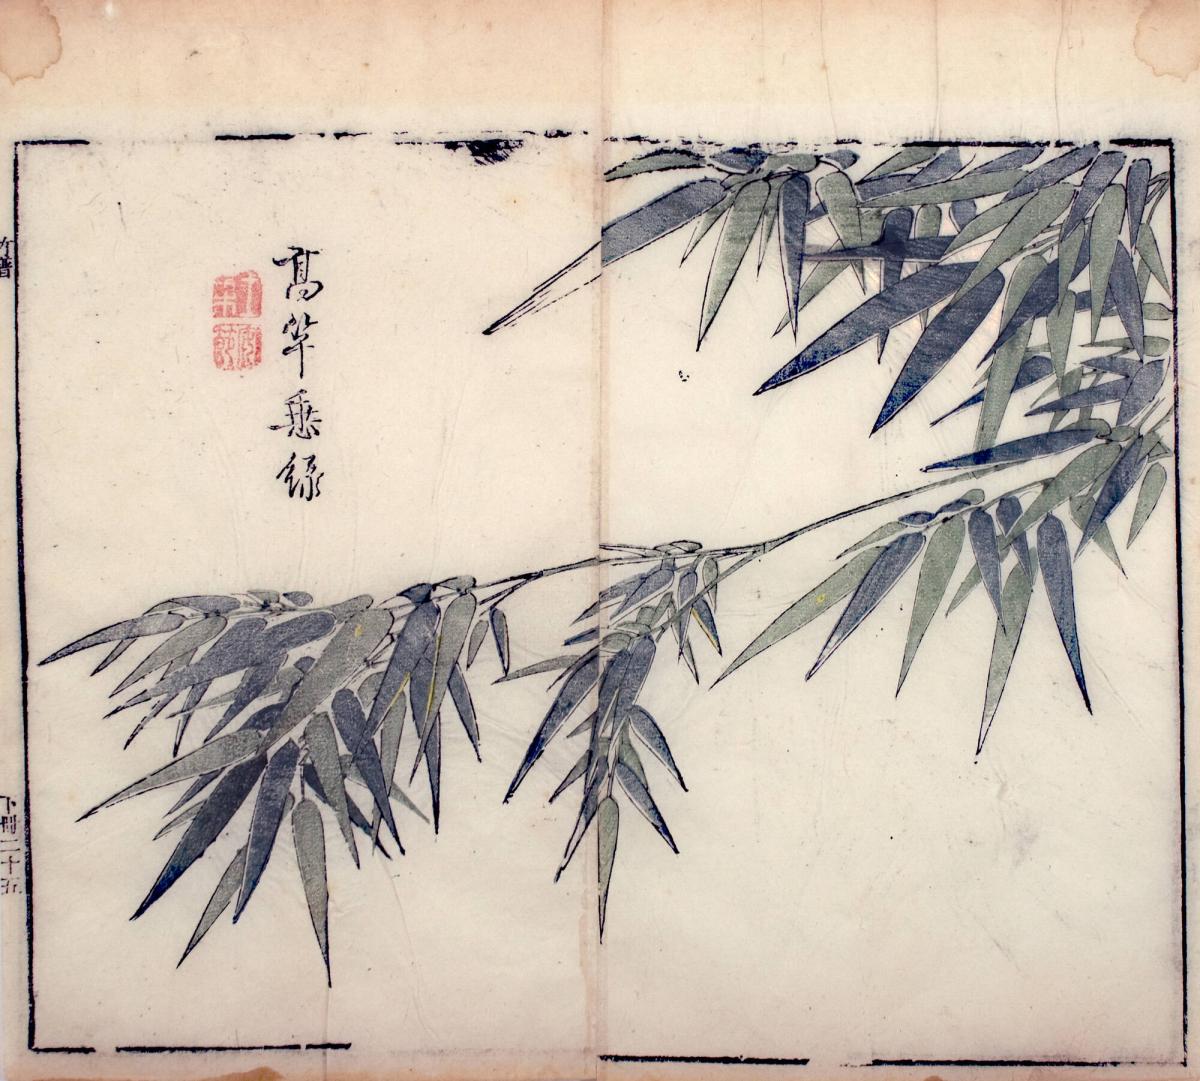 髙竿垂綠
竹譜
下冊二十五